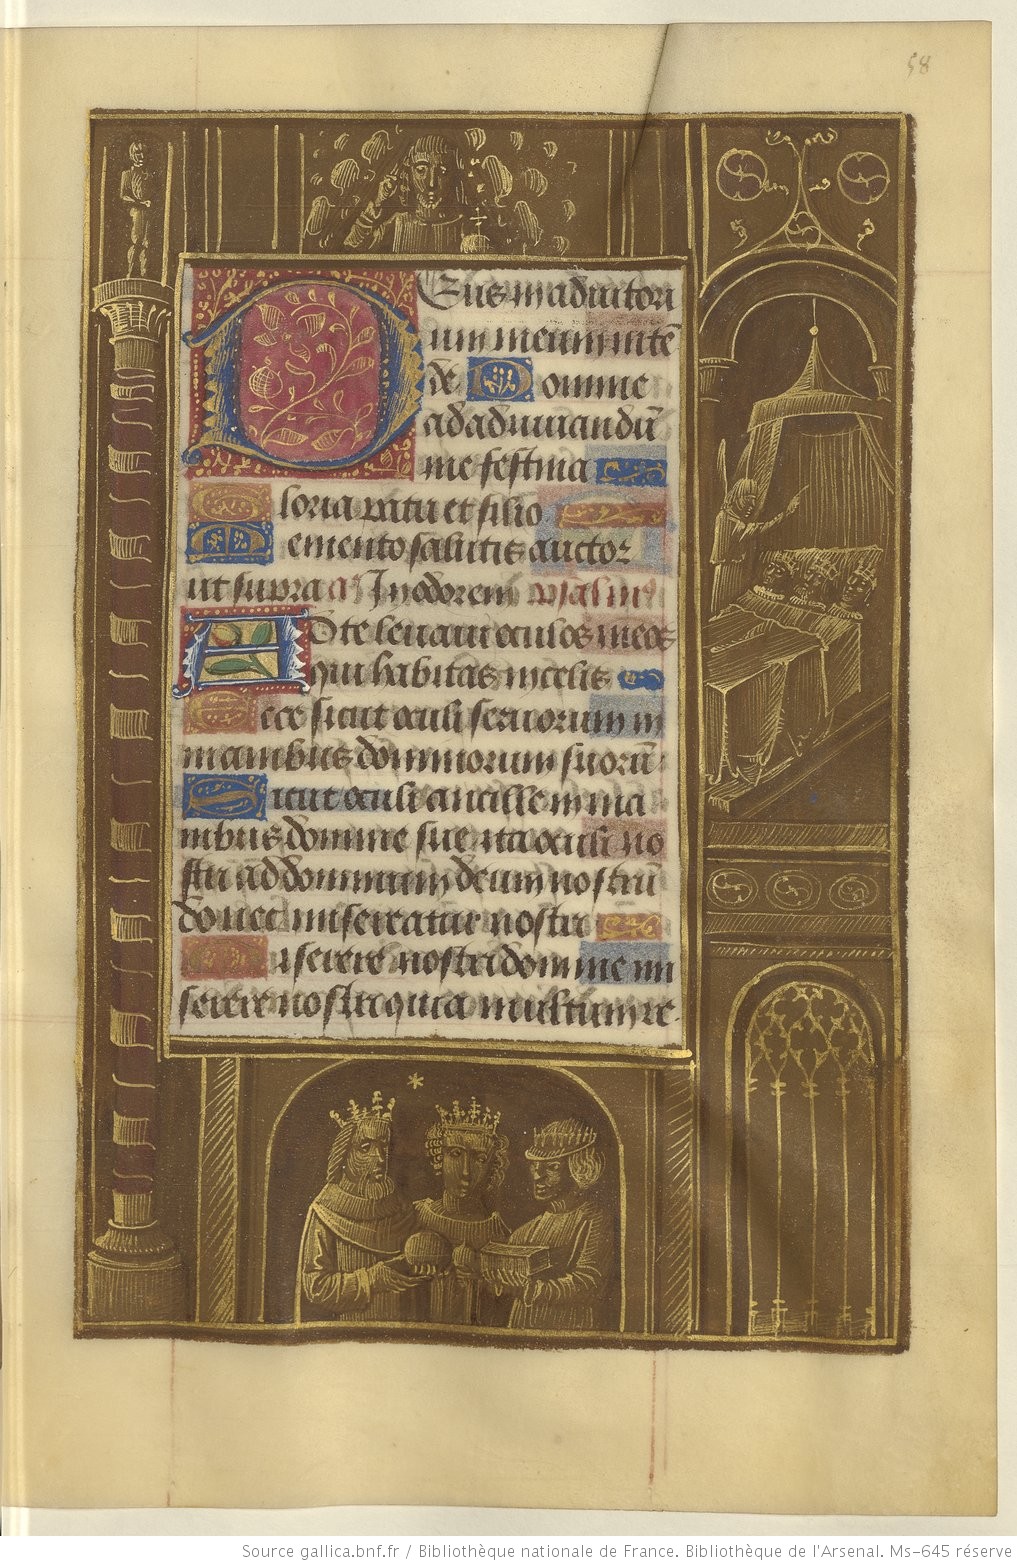 58
Deus in adiutori
um meum intē
de Domine
ad adiuuandū
me festina
Gloria patri et filio
Memento salutis auctor
ut supra añ In odorem psalmꝰ
Ad te leuaui oculos meos
qui habitas in celis
Ecce sicut oculi seruorum in
manibus dominorum suorū
Sicut oculi ancille in ma
nibus domine sue ita oculi no
stri ad dominum deum nostrū
donec misereatur nostri
Miserere nostri domine mi
serere nostri quia multum re-
Source gallica.bnf.fr / Bibliothèque nationale de France. Bibliothèque de l'Arsenal. Ms-645 réserve